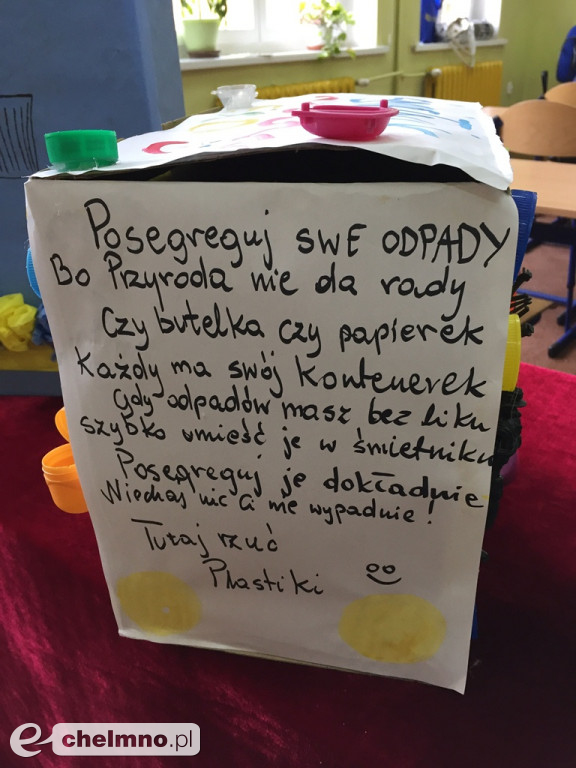 Posegreguj SWE ODPADY
Bo Przyroda nie da rady
Czy butelka czy papierek
Każdy ma swój kontenerek
Gdy odpadów masz bez liku
szybko umieść je w śmietniku
Posegreguj je dokładnie
Niechaj nic Ci nie wypadnie!
Tutaj rzuć
Plastiki
e chelmno.pl